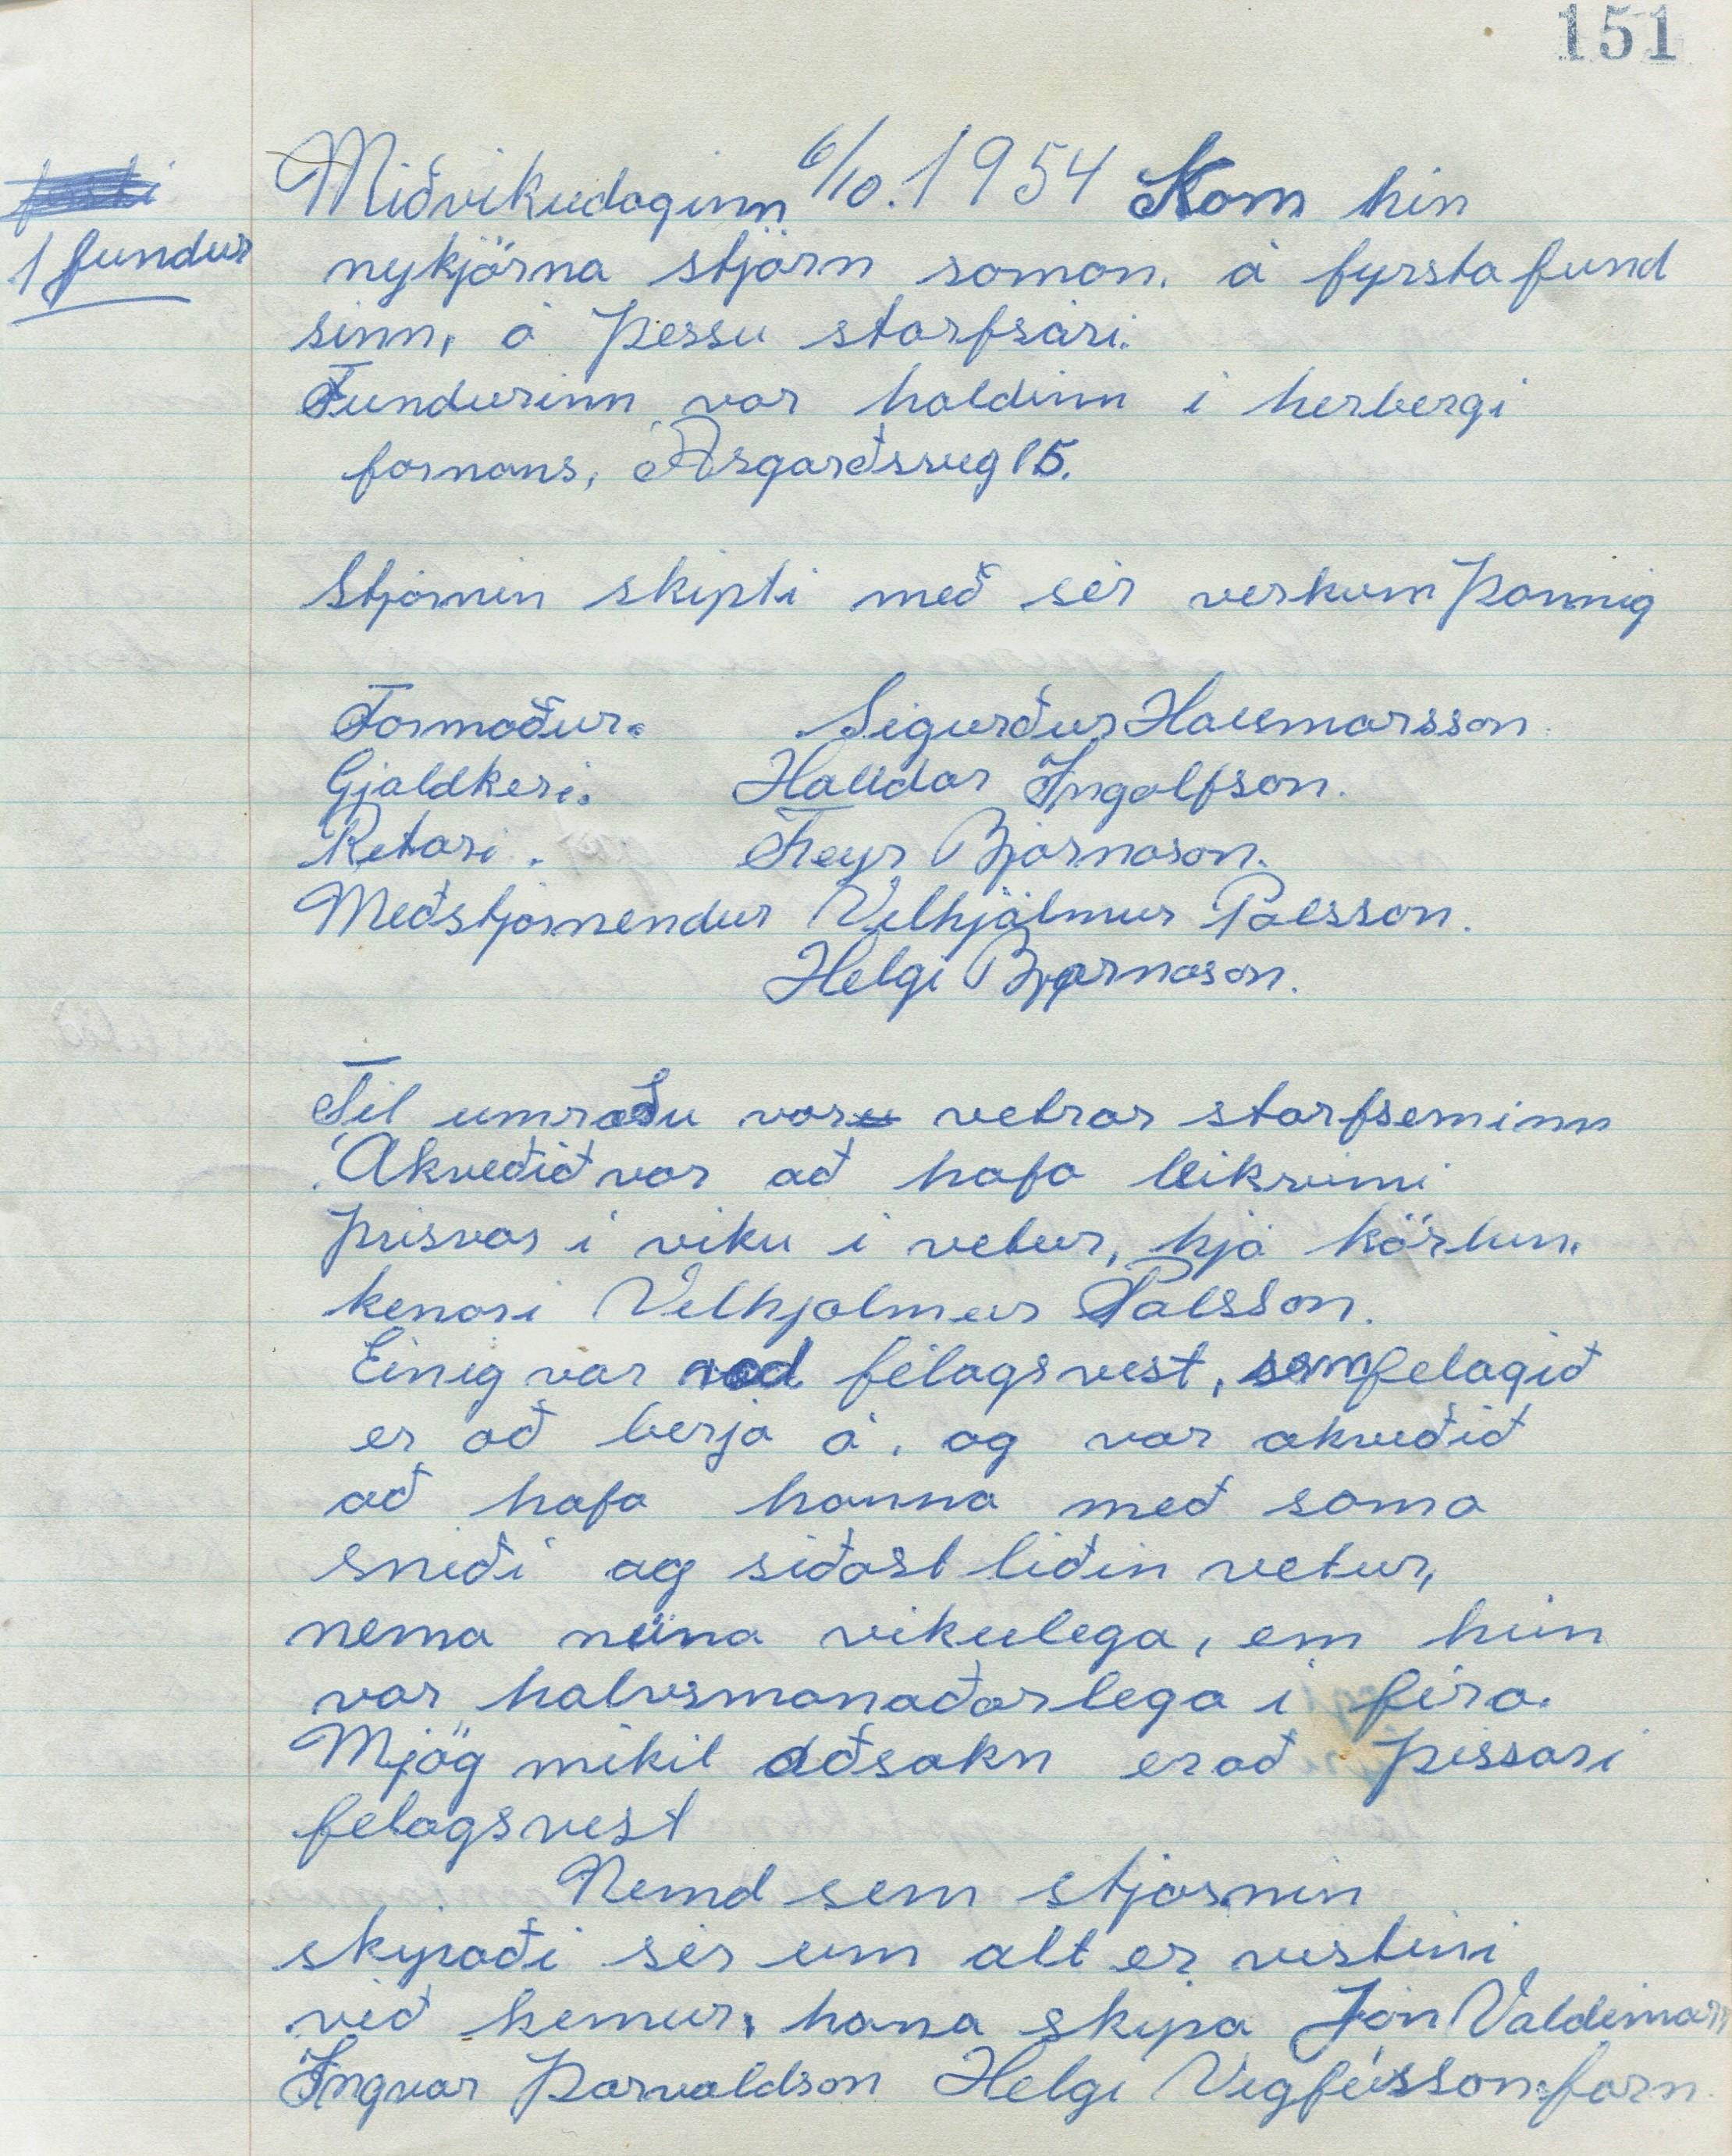 151
Miðvikudaginn 6/10. 1954 Kom hin
1 fundur
nykjörna stjórn saman. á fyrsta fund
sinn, á þessu starfsári.
Fundurinn var haldinn i herbergi
formans, Ásgarðsveg 15.
Stjornin skipti með sér verkum þannig
Formaður. Sigurður Hallmarsson.
Gjaldkeri. Halldor Ingolfson.
Retari. Freyr Bjarnason.
Meðstjornendur Vilhjálmur Pálsson.
Helgi Bjarnason.
Til umraðu var vetrar starfseminn
Ákveðið var að hafa leikvimi
þrisvar i viku i vetur, hjá körlum.
kenari Vilhjalmur Pálsson.
Einig var rædd félagsvest, sem felagið
er að berja á. og var akveðið
að hafa hanna með sama
sniði og siðast liðin vetur,
nema núna vikulega, em hún
var halvsmanaðarlega i fira.
Mjög mikil aðsokn er að þissari
felagsvest
Nemd sem stjornin
skipaði sér um alt er vistini
við kemur. hana skipa Jón Valdimars
Ingvar Þorvaldson Helgi Vigfússon. form.